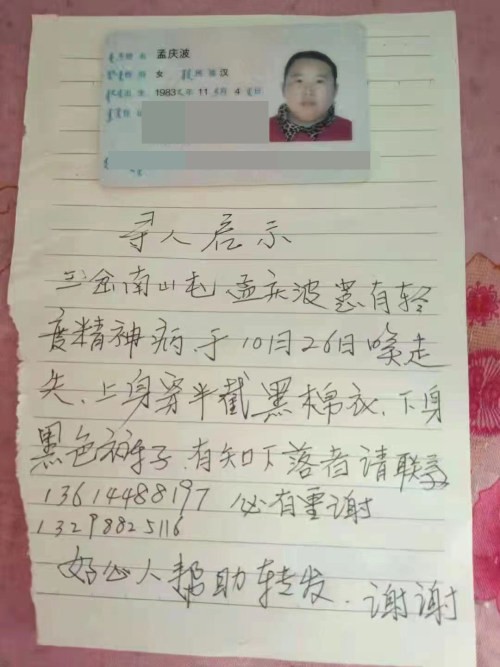 孟庆波
女 汉
1983 11 4
寻人启示
三合南山屯孟庆波患有轻
度精神病.于10月26日
走
失.上身穿半截黑棉衣.下身
黑色裤子.有知下落者请联系
13614488197 必有重谢
13298825116
好心人帮助转发.谢谢